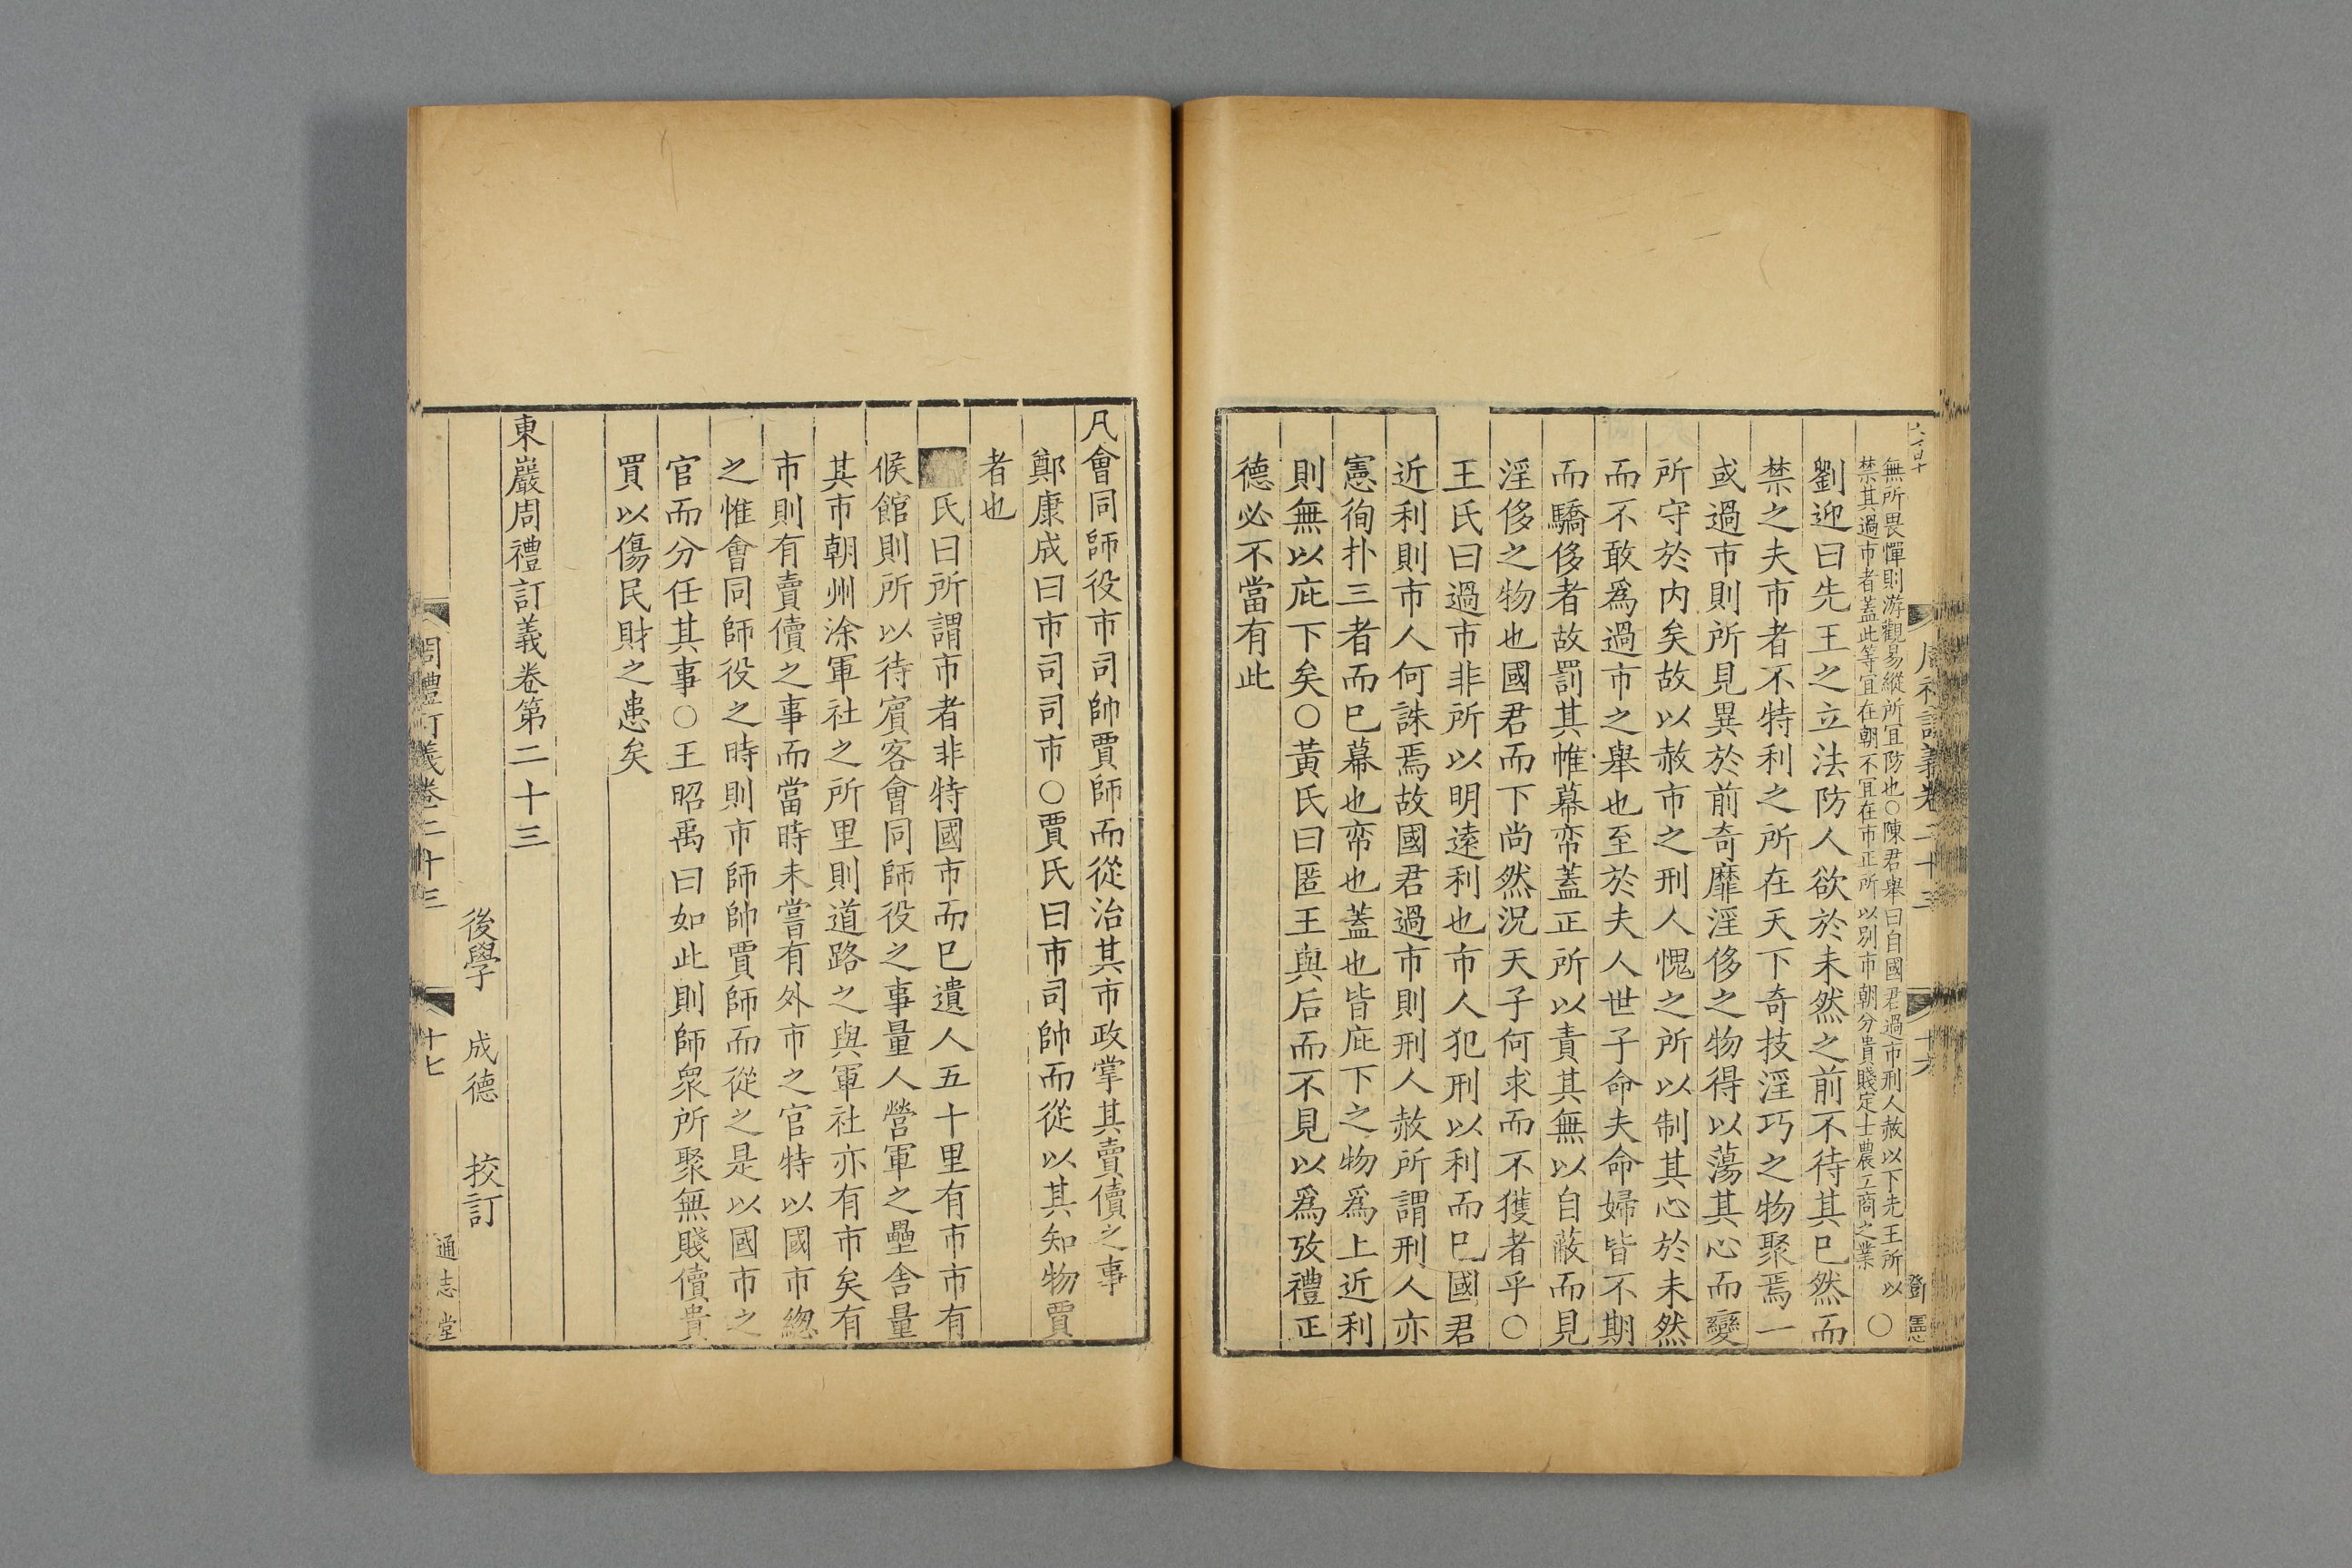 無所畏憚則游觀易縱所宜防也○陳君舉曰自國君過市刑人赦以下先王所以
禁其過市者蓋此等宜在朝不宜在市正所以別市朝分貴賤定士農工商之業○
劉迎曰先王之立法防人欲於未然之前不待其已然而
禁之夫市者不特利之所在天下奇技淫巧之物聚焉一
或過市則所見異於前奇靡淫侈之物得以蕩其心而變
所守於內矣故以赦市之刑人愧之所以制其心於未然
而不敢爲過市之舉也至於夫人世子命夫命婦皆不期
而驕侈者故罰其帷幕帟蓋正所以責其無以自蔽而見
淫侈之物也國君而下尚然況天子何求而不獲者乎○
王氏曰過市非所以明遠利也市人犯刑以利而已國君
近利則市人何誅焉故國君過市則刑人赦所謂刑人亦
憲徇扑三者而已幕也帟也蓋也皆庇下之物爲上近利
則無以庇下矣○黃氏曰匿王與后而不見以爲攷禮正
德必不當有此
凡會同師役市司帥賈師而從治其市政掌其賣儥之事
鄭康成曰市司司市○賈氏曰市司帥而從以其知物賈
者也
氏曰所謂市者非特國市而已遺人五十里有市市有
候館則所以待賓客會同師役之事量人營軍之壘舍量
其市朝州涂軍社之所里則道路之與軍社亦有市矣有
市則有賣儥之事而當時未嘗有外市之官特以國市總
之惟會同師役之時則市師帥賈師而從之是以國市之
官而分任其事○王昭禹曰如此則師衆所聚無賤儥貴
買以傷民財之患矣
東巖周禮訂義卷第二十三
後學 成德 挍訂
周禮訂義卷二十三 十七 通志堂